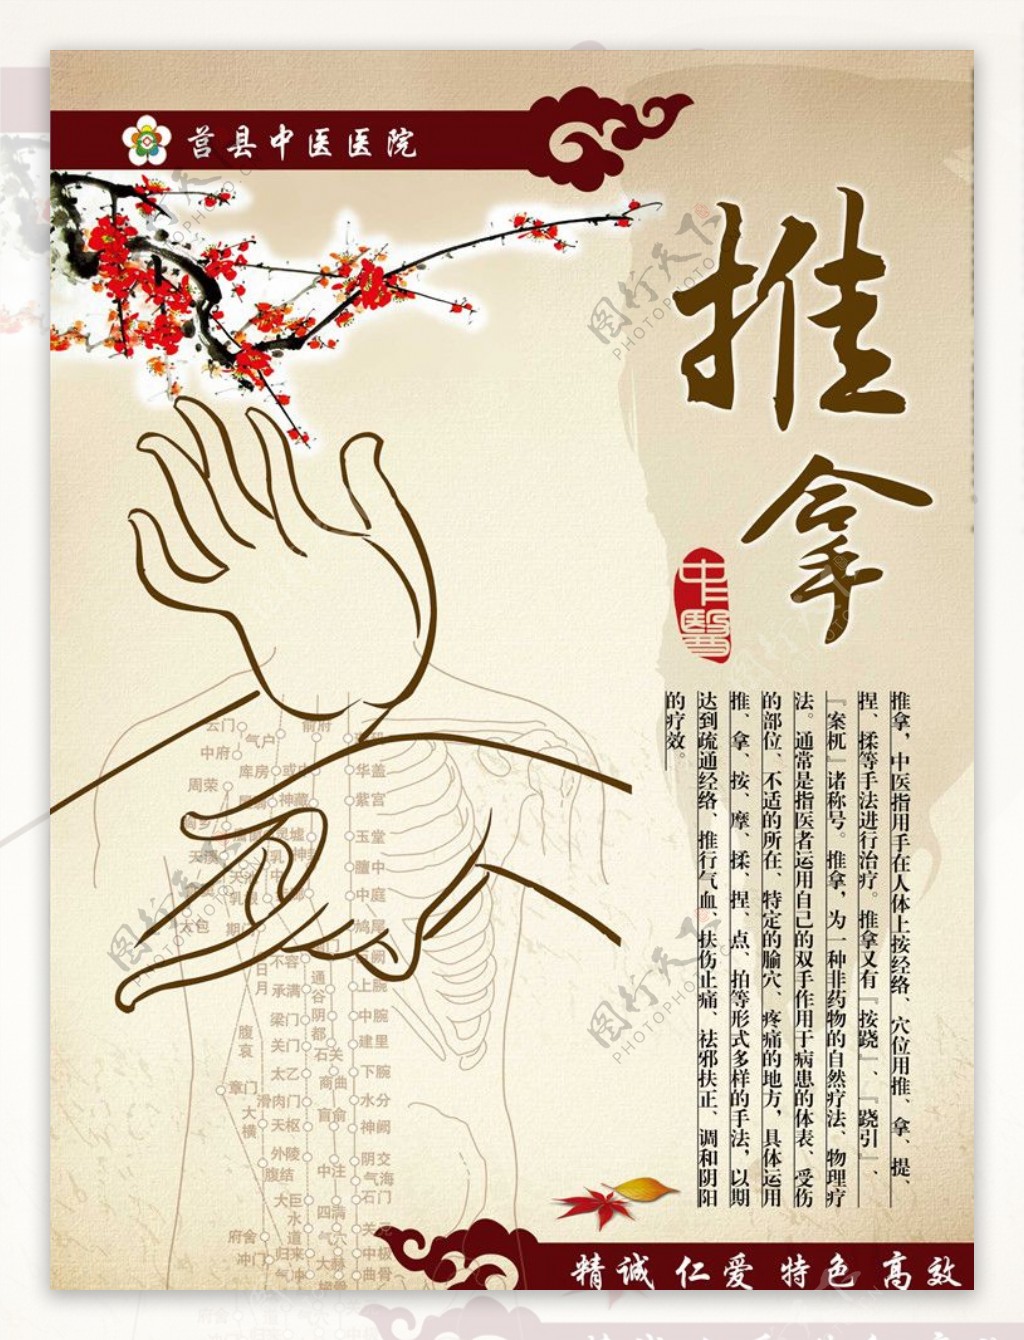 莒县中医医院
推拿
中醫
推拿，中医指用手在人体上按经络、穴位用推、拿、提、
捏、揉等手法进行治疗。推拿又有『按跷』、『跷引』、
『案杌』诸称号。推拿，为一种非药物的自然疗法、物理疗
法。通常是指医者运用自己的双手作用于病患的体表、受伤
的部位、不适的所在、特定的腧穴、疼痛的地方，具体运用
推、拿、按、摩、揉、捏、点、拍等形式多样的手法，以期
达到疏通经络、推行气血、扶伤止痛、祛邪扶正、调和阴阳
的疗效。
云门
气户
俞府
中府
库房
华盖
周荣
神藏
紫宫
玉堂
膻中
中庭
鸠尾
大包
不容
日月
承满
通谷
上脘
梁门
阴都
中脘
腹哀
关门
石关
建里
太乙
商曲
下脘
章门
滑肉门
肓俞
水分
大横
天枢
神阙
外陵
中注
阴交
腹结
气海
大巨
四满
石门
水道
气穴
关元
府舍
归来
大赫
中极
冲门
气冲
曲骨
精诚 仁爱 特色 高效
图行天下
PHOTOPHOTO.CN